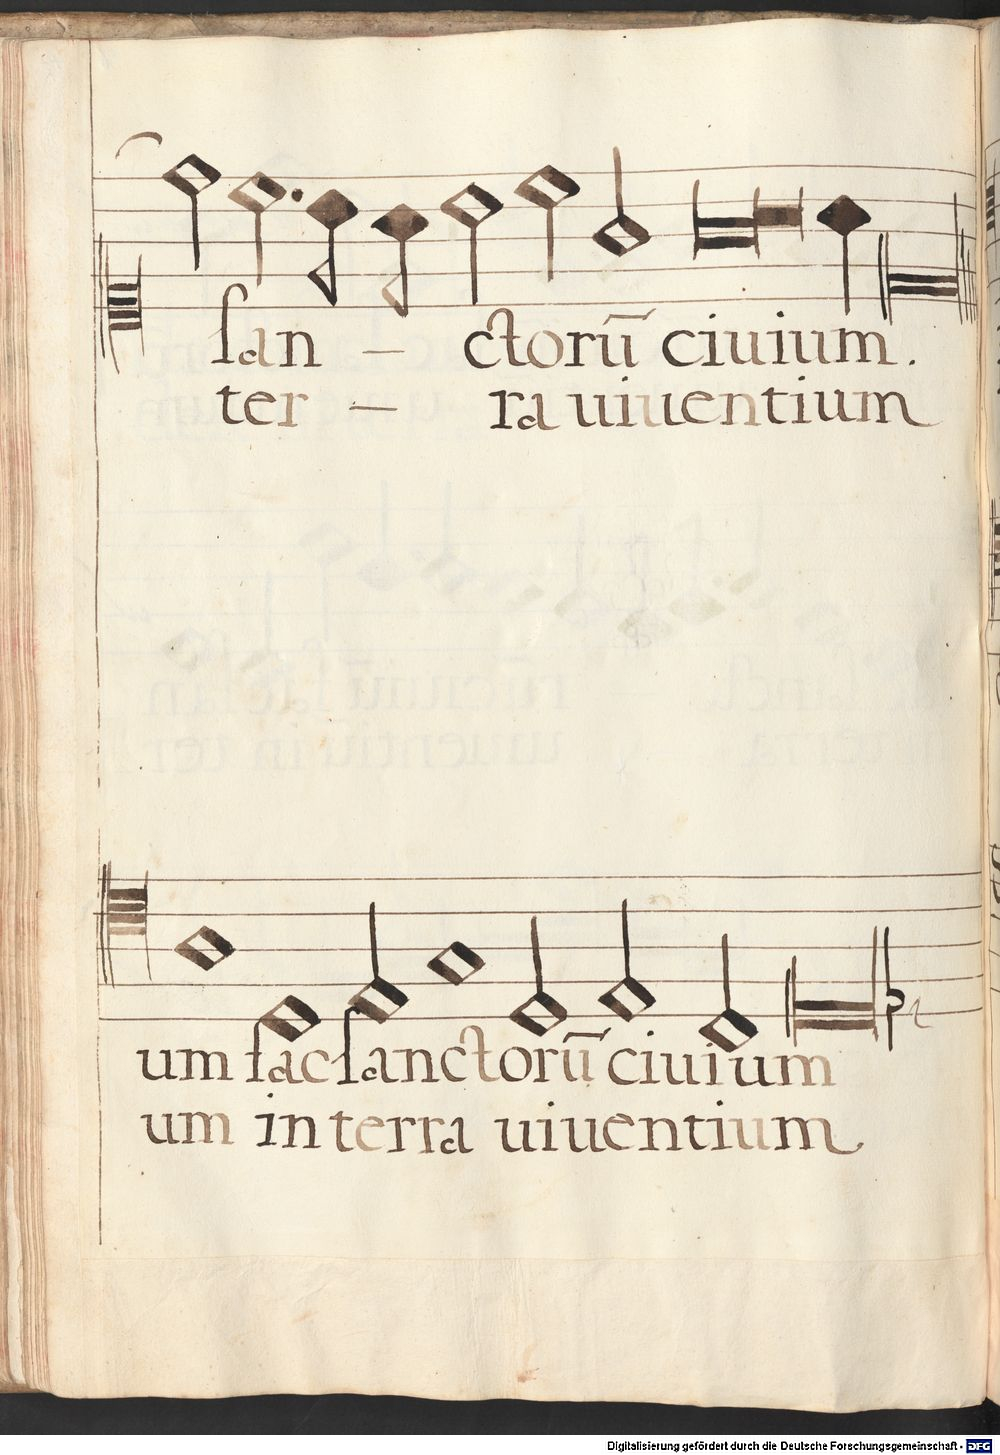 ſan — ctorū ciuium.
ter — ra uiuentium
um ſac ſanctorū ciuium
um in terra uiuentium
Digitalisierung gefördert durch die Deutsche Forschungsgemeinschaft - DFG